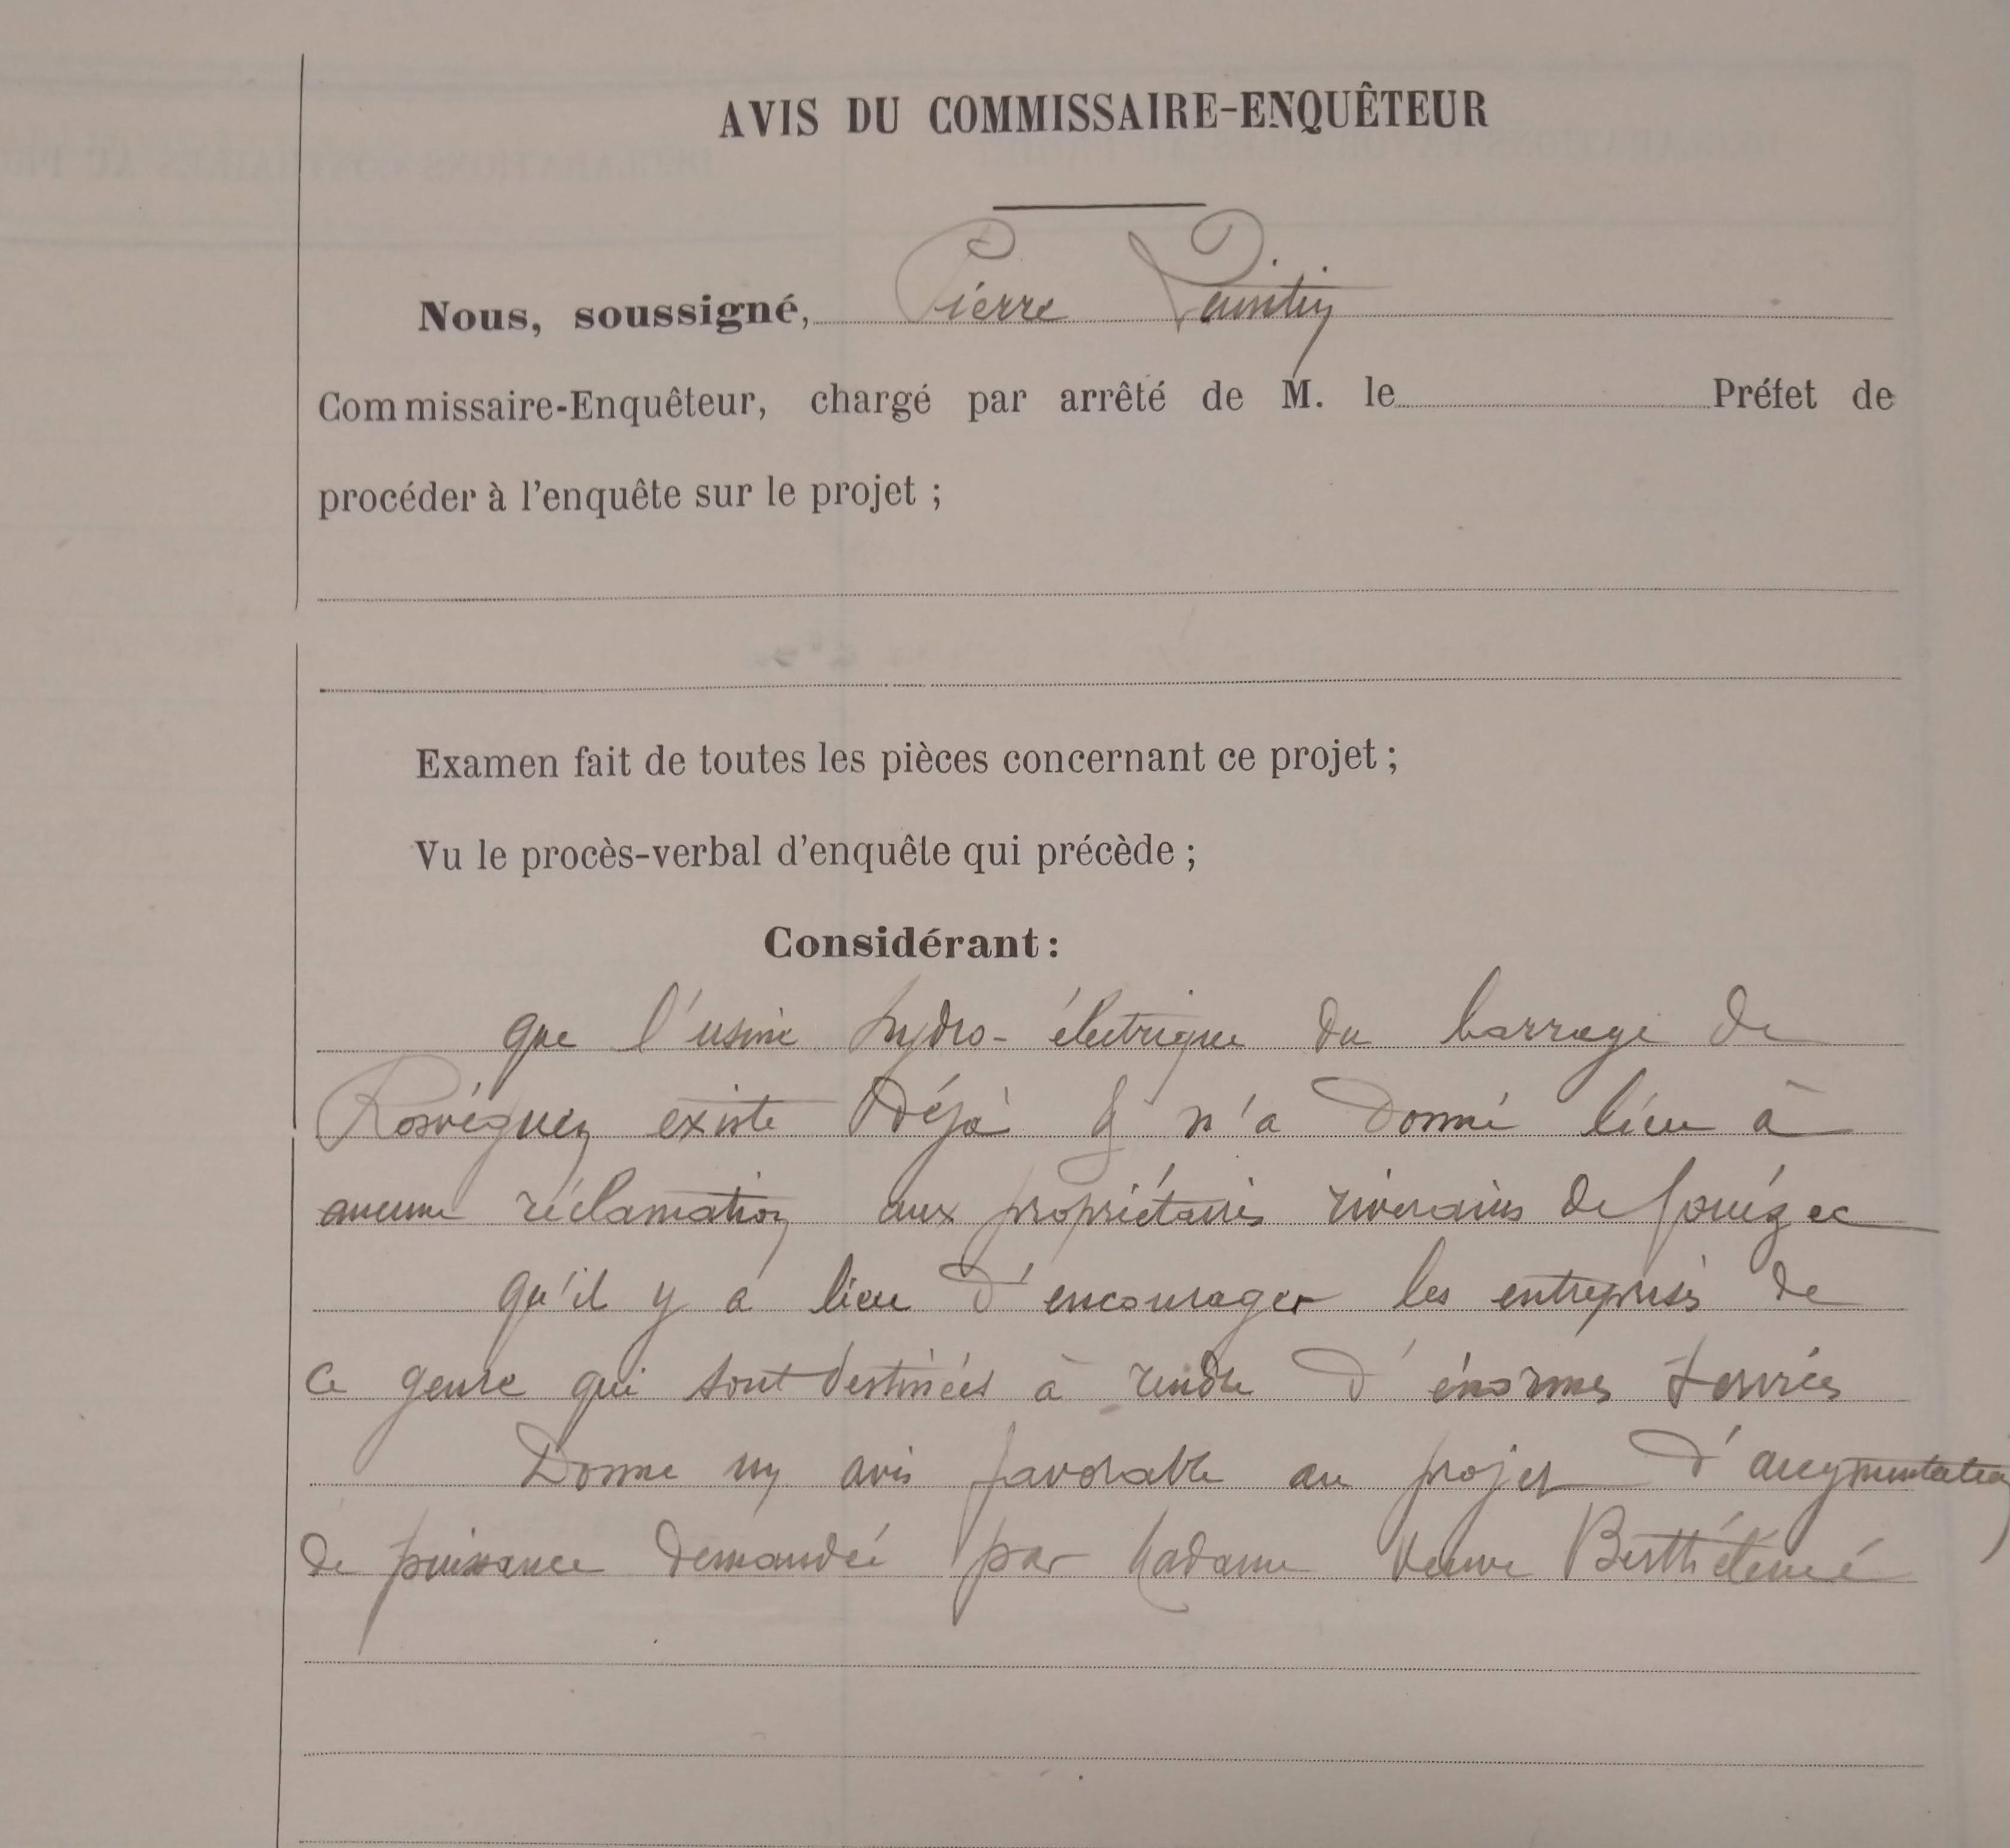 AVIS DU COMMISSAIRE-ENQUÊTEUR
Nous, soussigné, Pierre
Commissaire-Enquêteur, chargé par arrêté de M. le Préfet de
procéder à l'enquête sur le projet ;
Examen fait de toutes les pièces concernant ce projet ;
Vu le procès-verbal d'enquête qui précède ;
Considérant :
que l'usine hydro-électrique du barrage de
Rosvéguen existe déjà & n'a donné lieu à
aucune réclamation aux propriétaires riverains de Gouézec
qu'il y a lieu d'encourager les entreprises de
ce genre qui sont destinées à rendre d'énormes services
Donne un avis favorable au projet d'augmentation
de puissance demandée par Madame Veuve Berthélémé